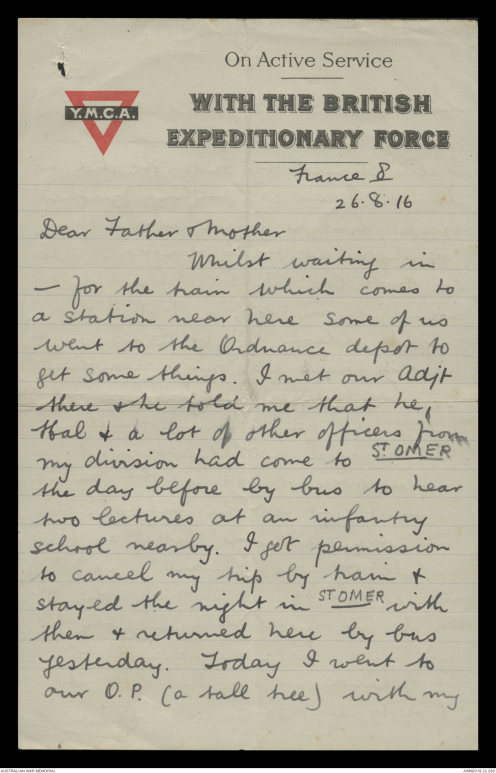 On Active Service
WITH THE BRITISH
Y.M.C.A.
EXPEDITIONARY FORCE
France 8
26.8.16
Dear Father & Mother
Whilst waiting in
— for the train which comes to
a station near here some of us
went to the Ordnance depot to
get some things. I met our Adjt
there & he told me that he,
Hal & a lot of other officers from
my division had come to ST OMER
the day before by bus to hear
two lectures at an infantry
school nearby. I got permission
to cancel my trip by train &
stayed the night in ST OMER with
them & returned here by bus
yesterday. Today I went to
our O.P. (a tall tree) with my
AUSTRALIAN WAR MEMORIAL